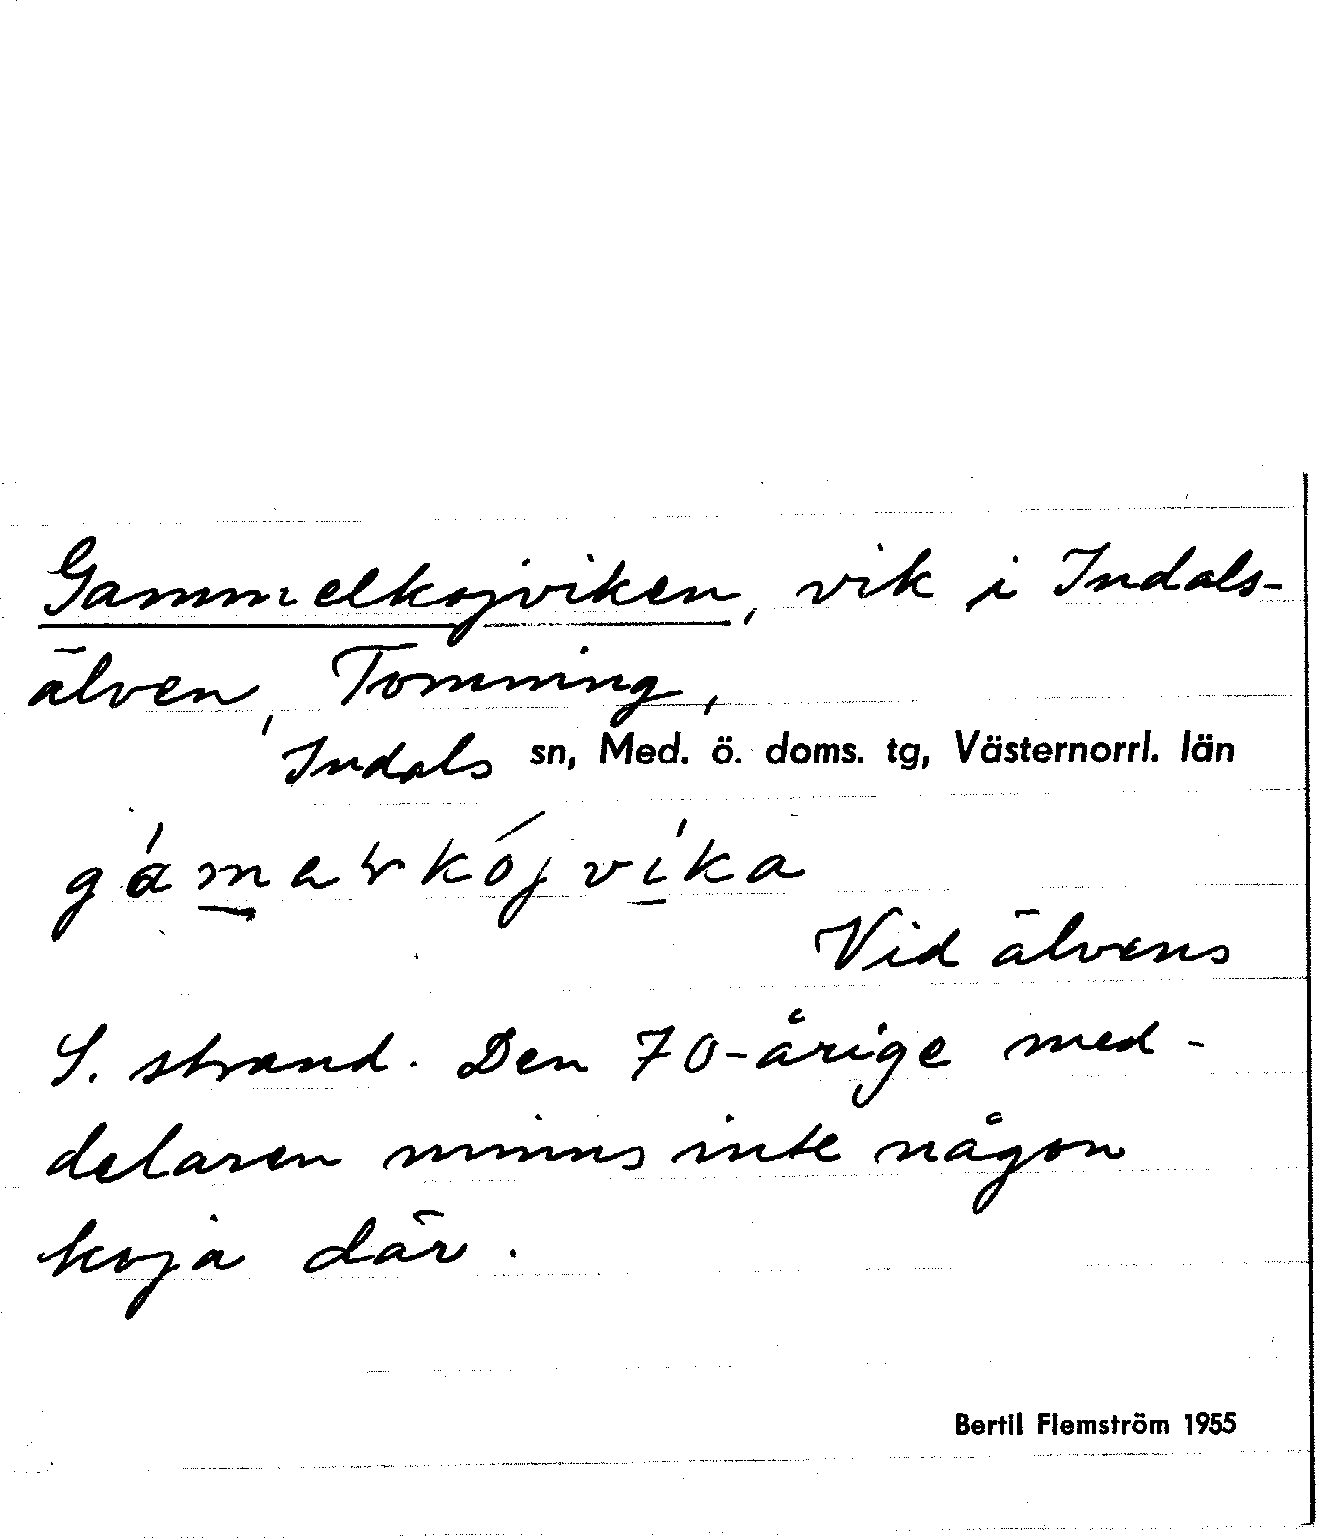 Gammelkojviken, vik i Indals-
älven, Tomming,
Indals sn, Med. ö. doms. tg, Västernorrl. län
Vid älvens
S. strand. Den 70-årige med-
delaren minns inte någon
koja där.
Bertil Flemström 1955